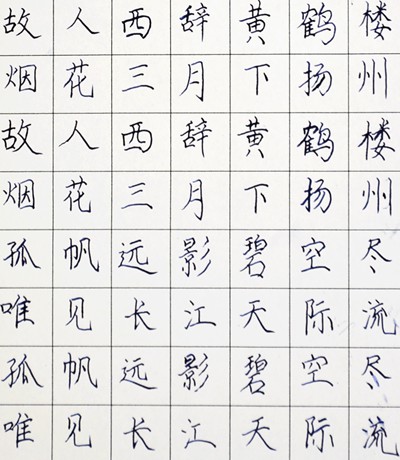 故人西辞黄鹤楼
烟花三月下扬州
故人西辞黄鹤楼
烟花三月下扬州
孤帆远影碧空尽
唯见长江天际流
孤帆远影碧空尽
唯见长江天际流